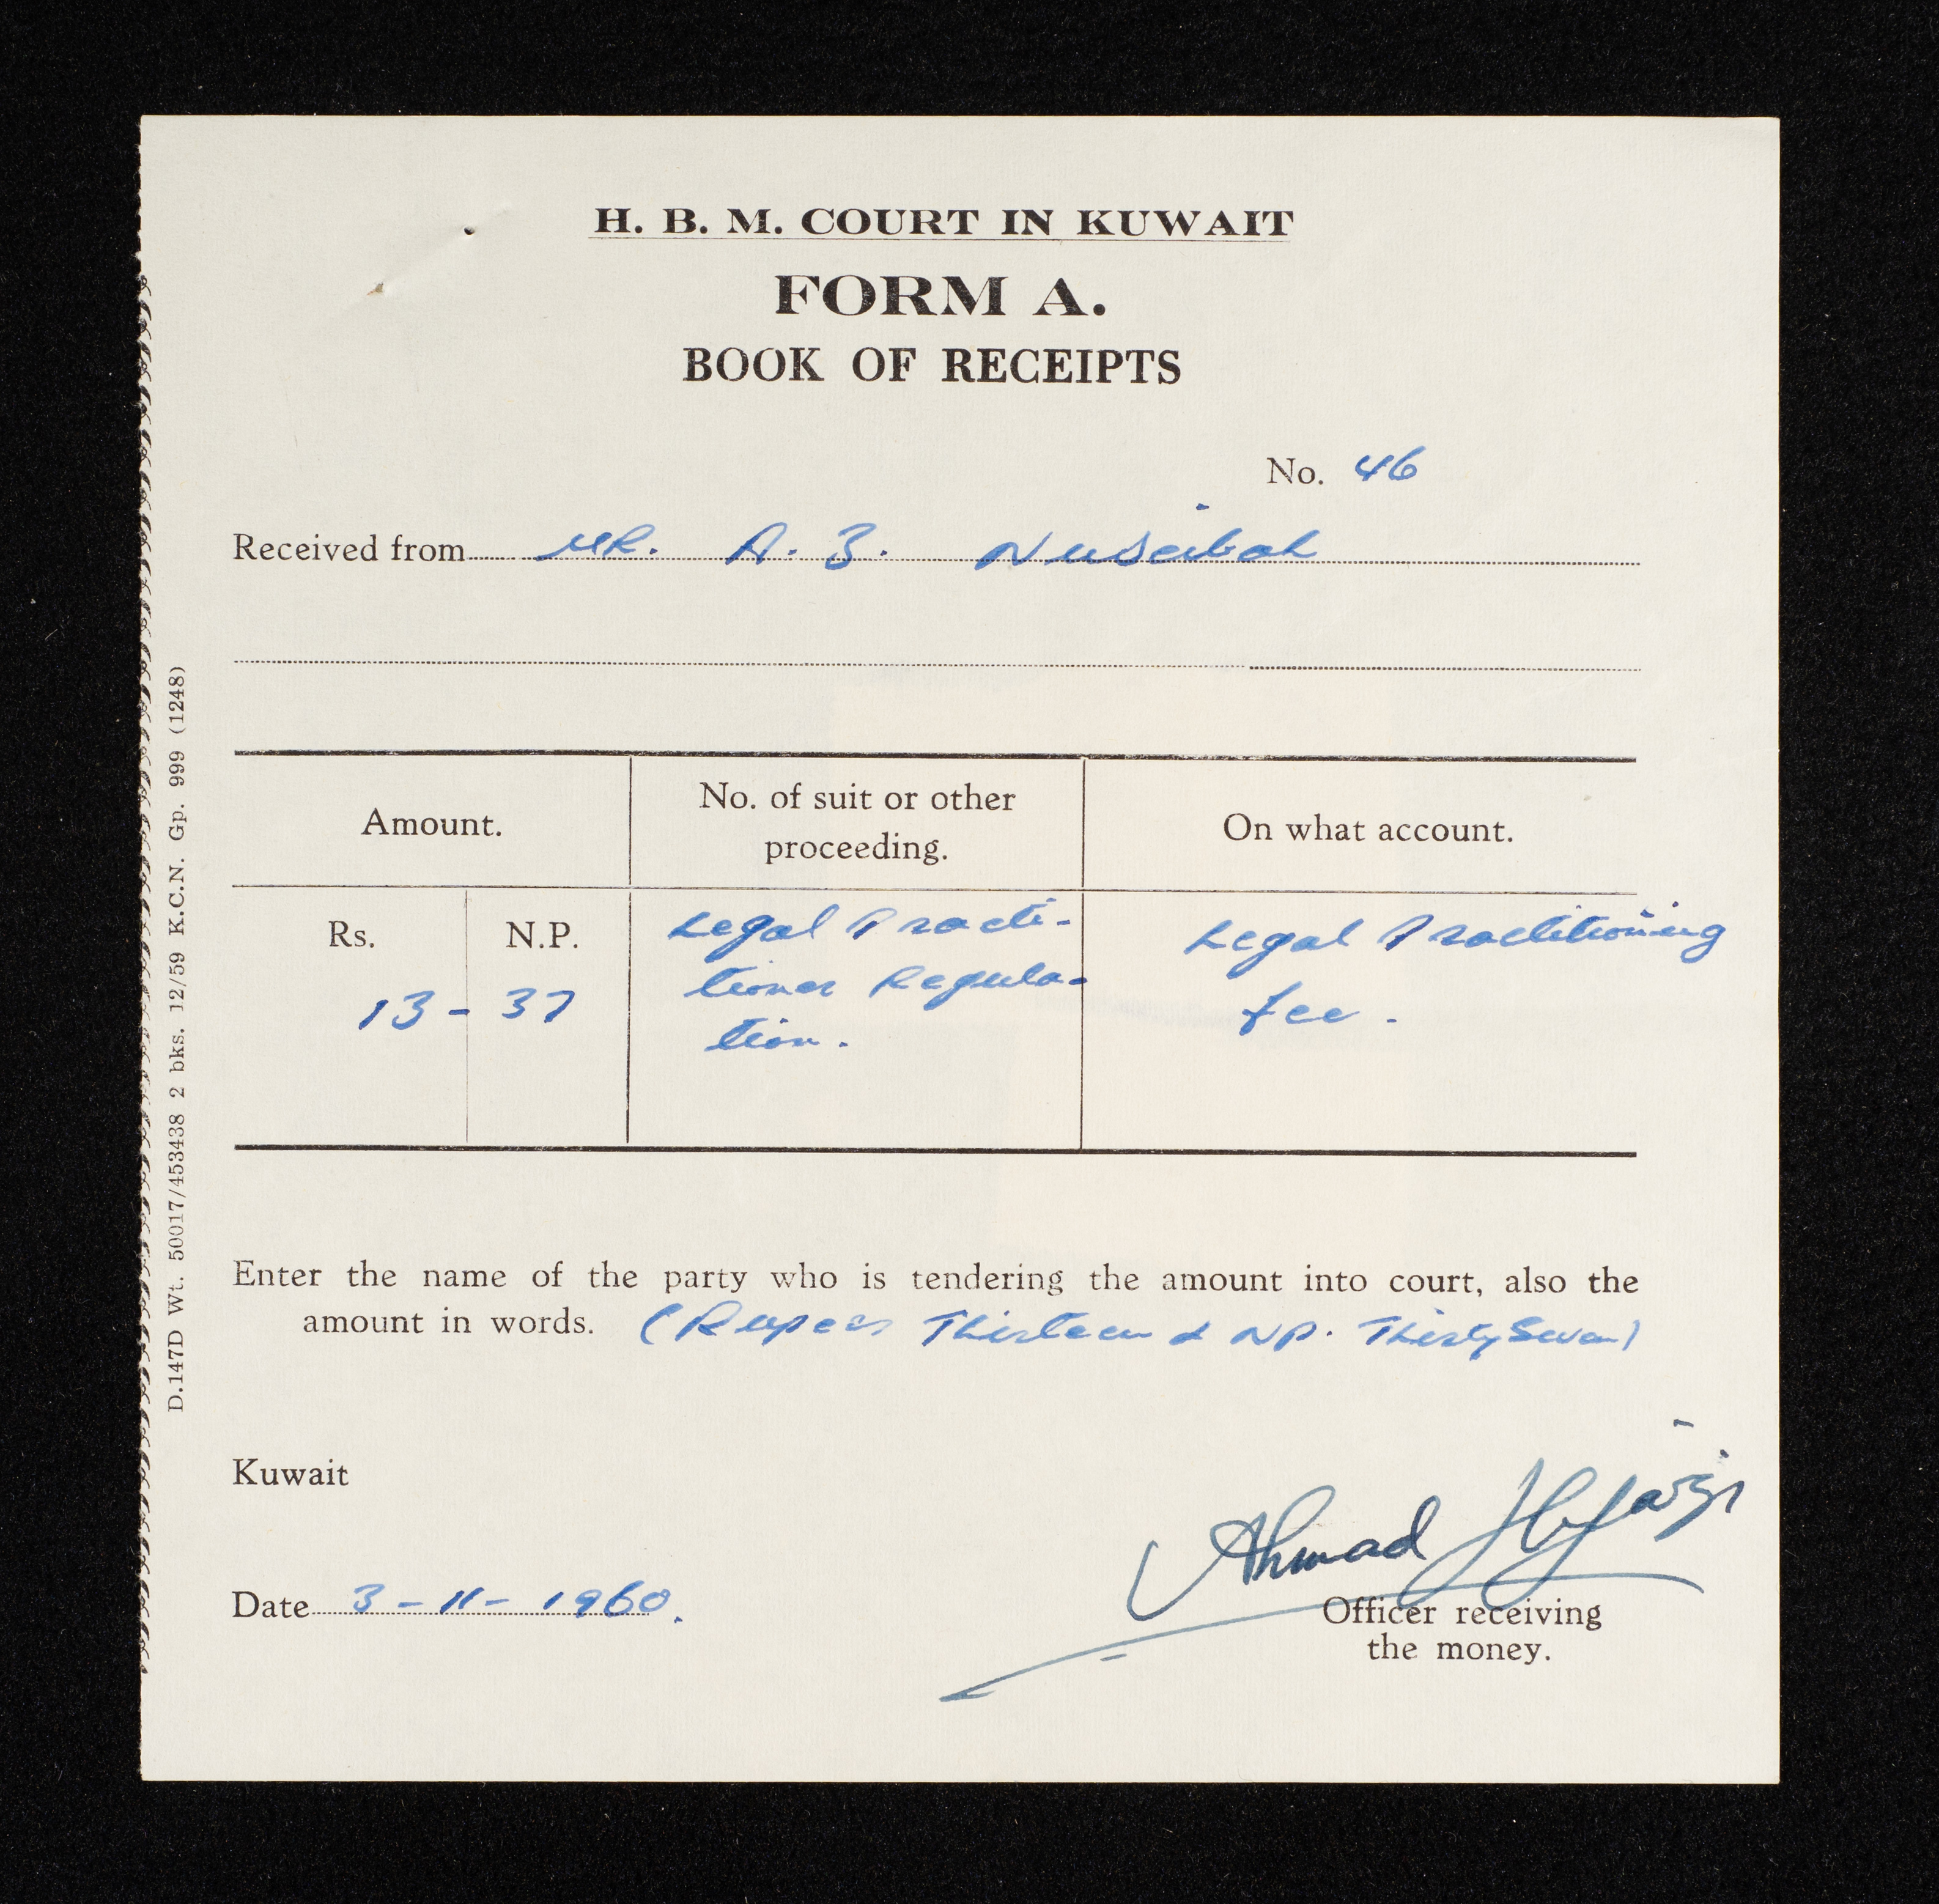 H. B. M. COURT IN KUWAIT
FORM A.
BOOK OF RECEIPTS
No. 46
Received from MR. A. Z. Nuseibeh
Amount.
No. of suit or other
proceeding.
On what account.
Rs.
N.P.
13 - 37
Legal Practi-
tioner Regula-
tion.
Legal Practitioning
fee.
Enter the name of the party who is tendering the amount into court, also the
amount in words. (Rupees Thirteen & NP. Thirty Seven)
Kuwait
Ahmad
Date 3-11-1960.
Officer receiving
the money.
D.147D Wt. 50017/453438 2 bks. 12/59 K.C.N. Gp. 999 (1248)